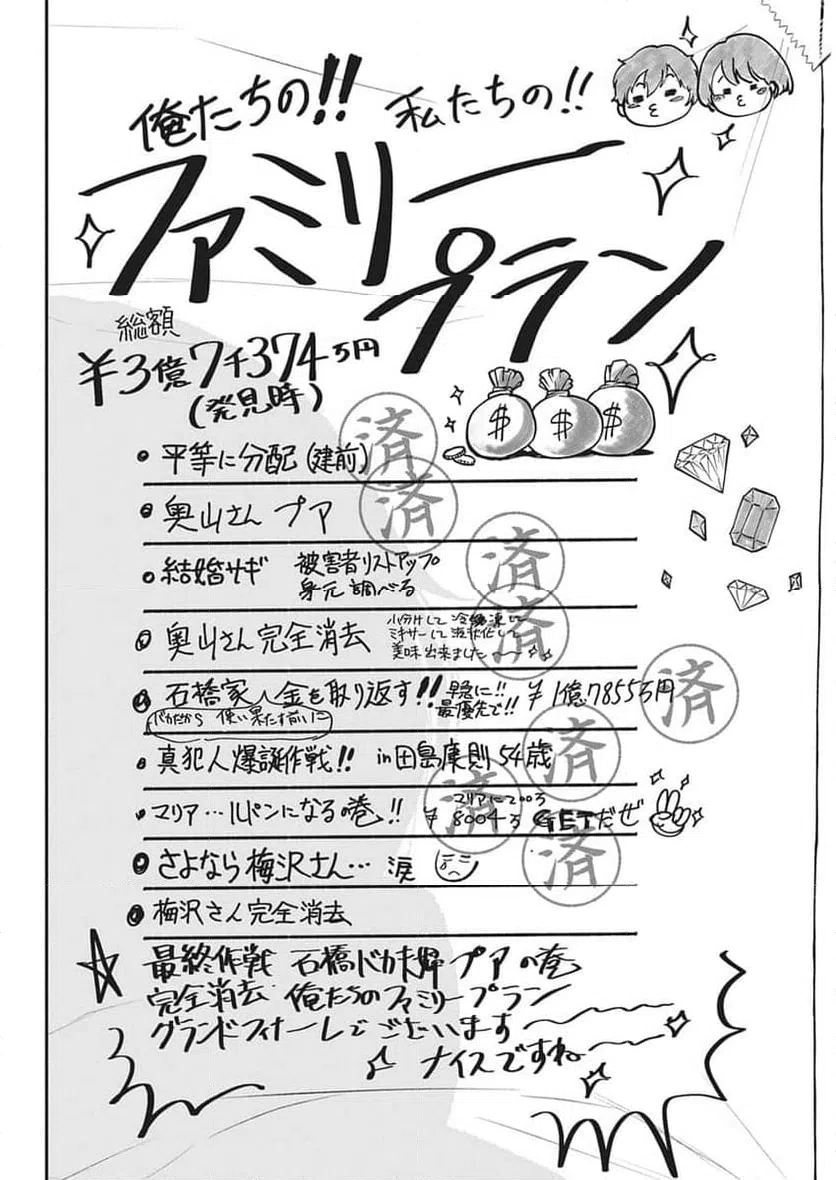 俺たちの!! 私たちの!!
ファミリー
プラン
総額
¥3億7千374万円
(発見時)
$ $ $
• 平等に分配(建前) 済
• 奥山さん プア 済
• 結婚サギ 被害者リストアップ 済
身元調べる
• 奥山さん完全消去 小分けして冷凍して 済
ミキサーして液状化して
美味出来ました〜〜
• 石橋家へ金を取り返す!! 早急に!! ¥1億7855万円 済
最優先で!!
バカだから 使い果たす前に
• 真犯人爆誕作戦!! in田島康則54歳 済
• マリア…ルパンになるの巻!! ¥8004万 GETだぜ 済
マリアに200万
• さよなら梅沢さん… 涙 済
• 梅沢さん完全消去
最終作戦 石橋バカ夫婦 プアの巻
完全消去 俺たちのファミリープラン
グランドフィナーレでございます
ナイスですね